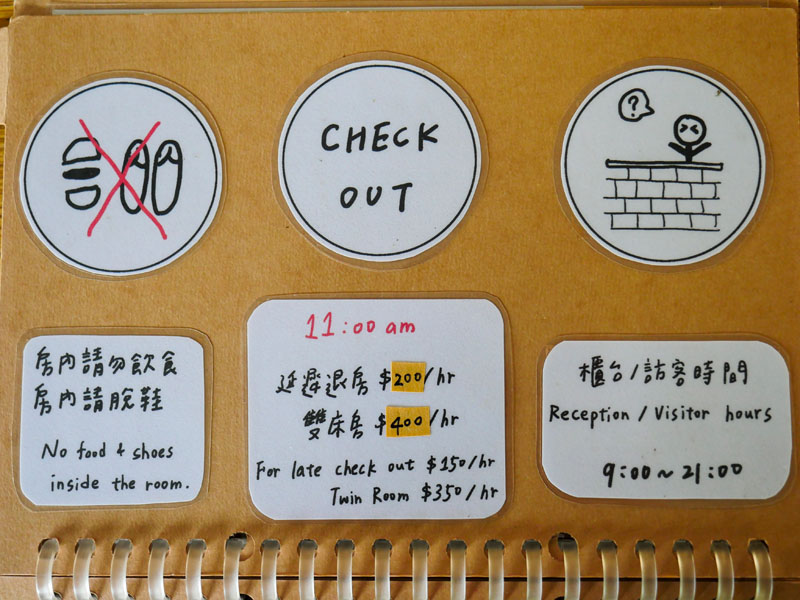 CHECK
OUT
?
房內請勿飲食
房內請脫鞋
No food & shoes
inside the room.
11:00 am
延遲退房 $200/hr
雙床房 $400/hr
For late check out $150/hr
Twin Room $350/hr
櫃台/訪客時間
Reception / Visitor hours
9:00~21:00